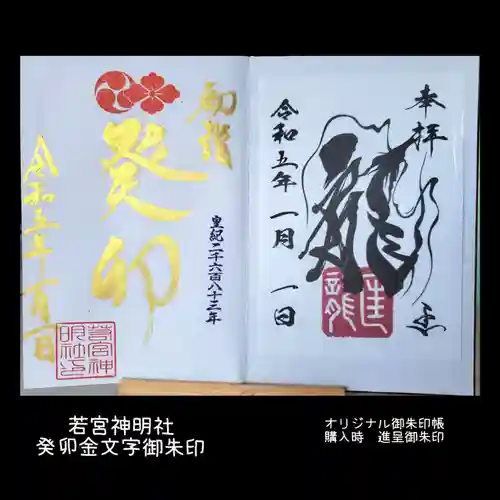 奉拝
龍
令和五年 一月 一日
初詣
癸卯
皇紀二千六百八十三年
令和五年一月一日
若宮神明社印
若宮神明社
癸卯金文字御朱印
オリジナル御朱印帳
購入時 進呈御朱印